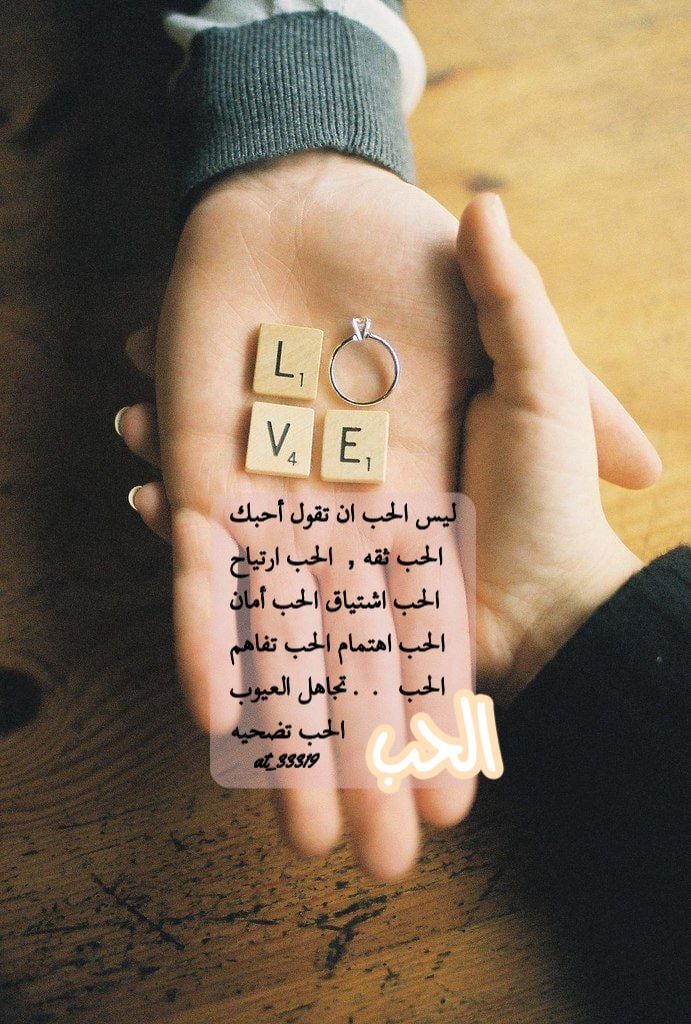 L₁
V₄ E₁
ليس الحب ان تقول أحبك
الحب ثقه , الحب ارتياح
الحب اشتياق الحب أمان
الحب اهتمام الحب تفاهم
الحب . . تجاهل العيوب
الحب تضحيه
at_33319
الحب